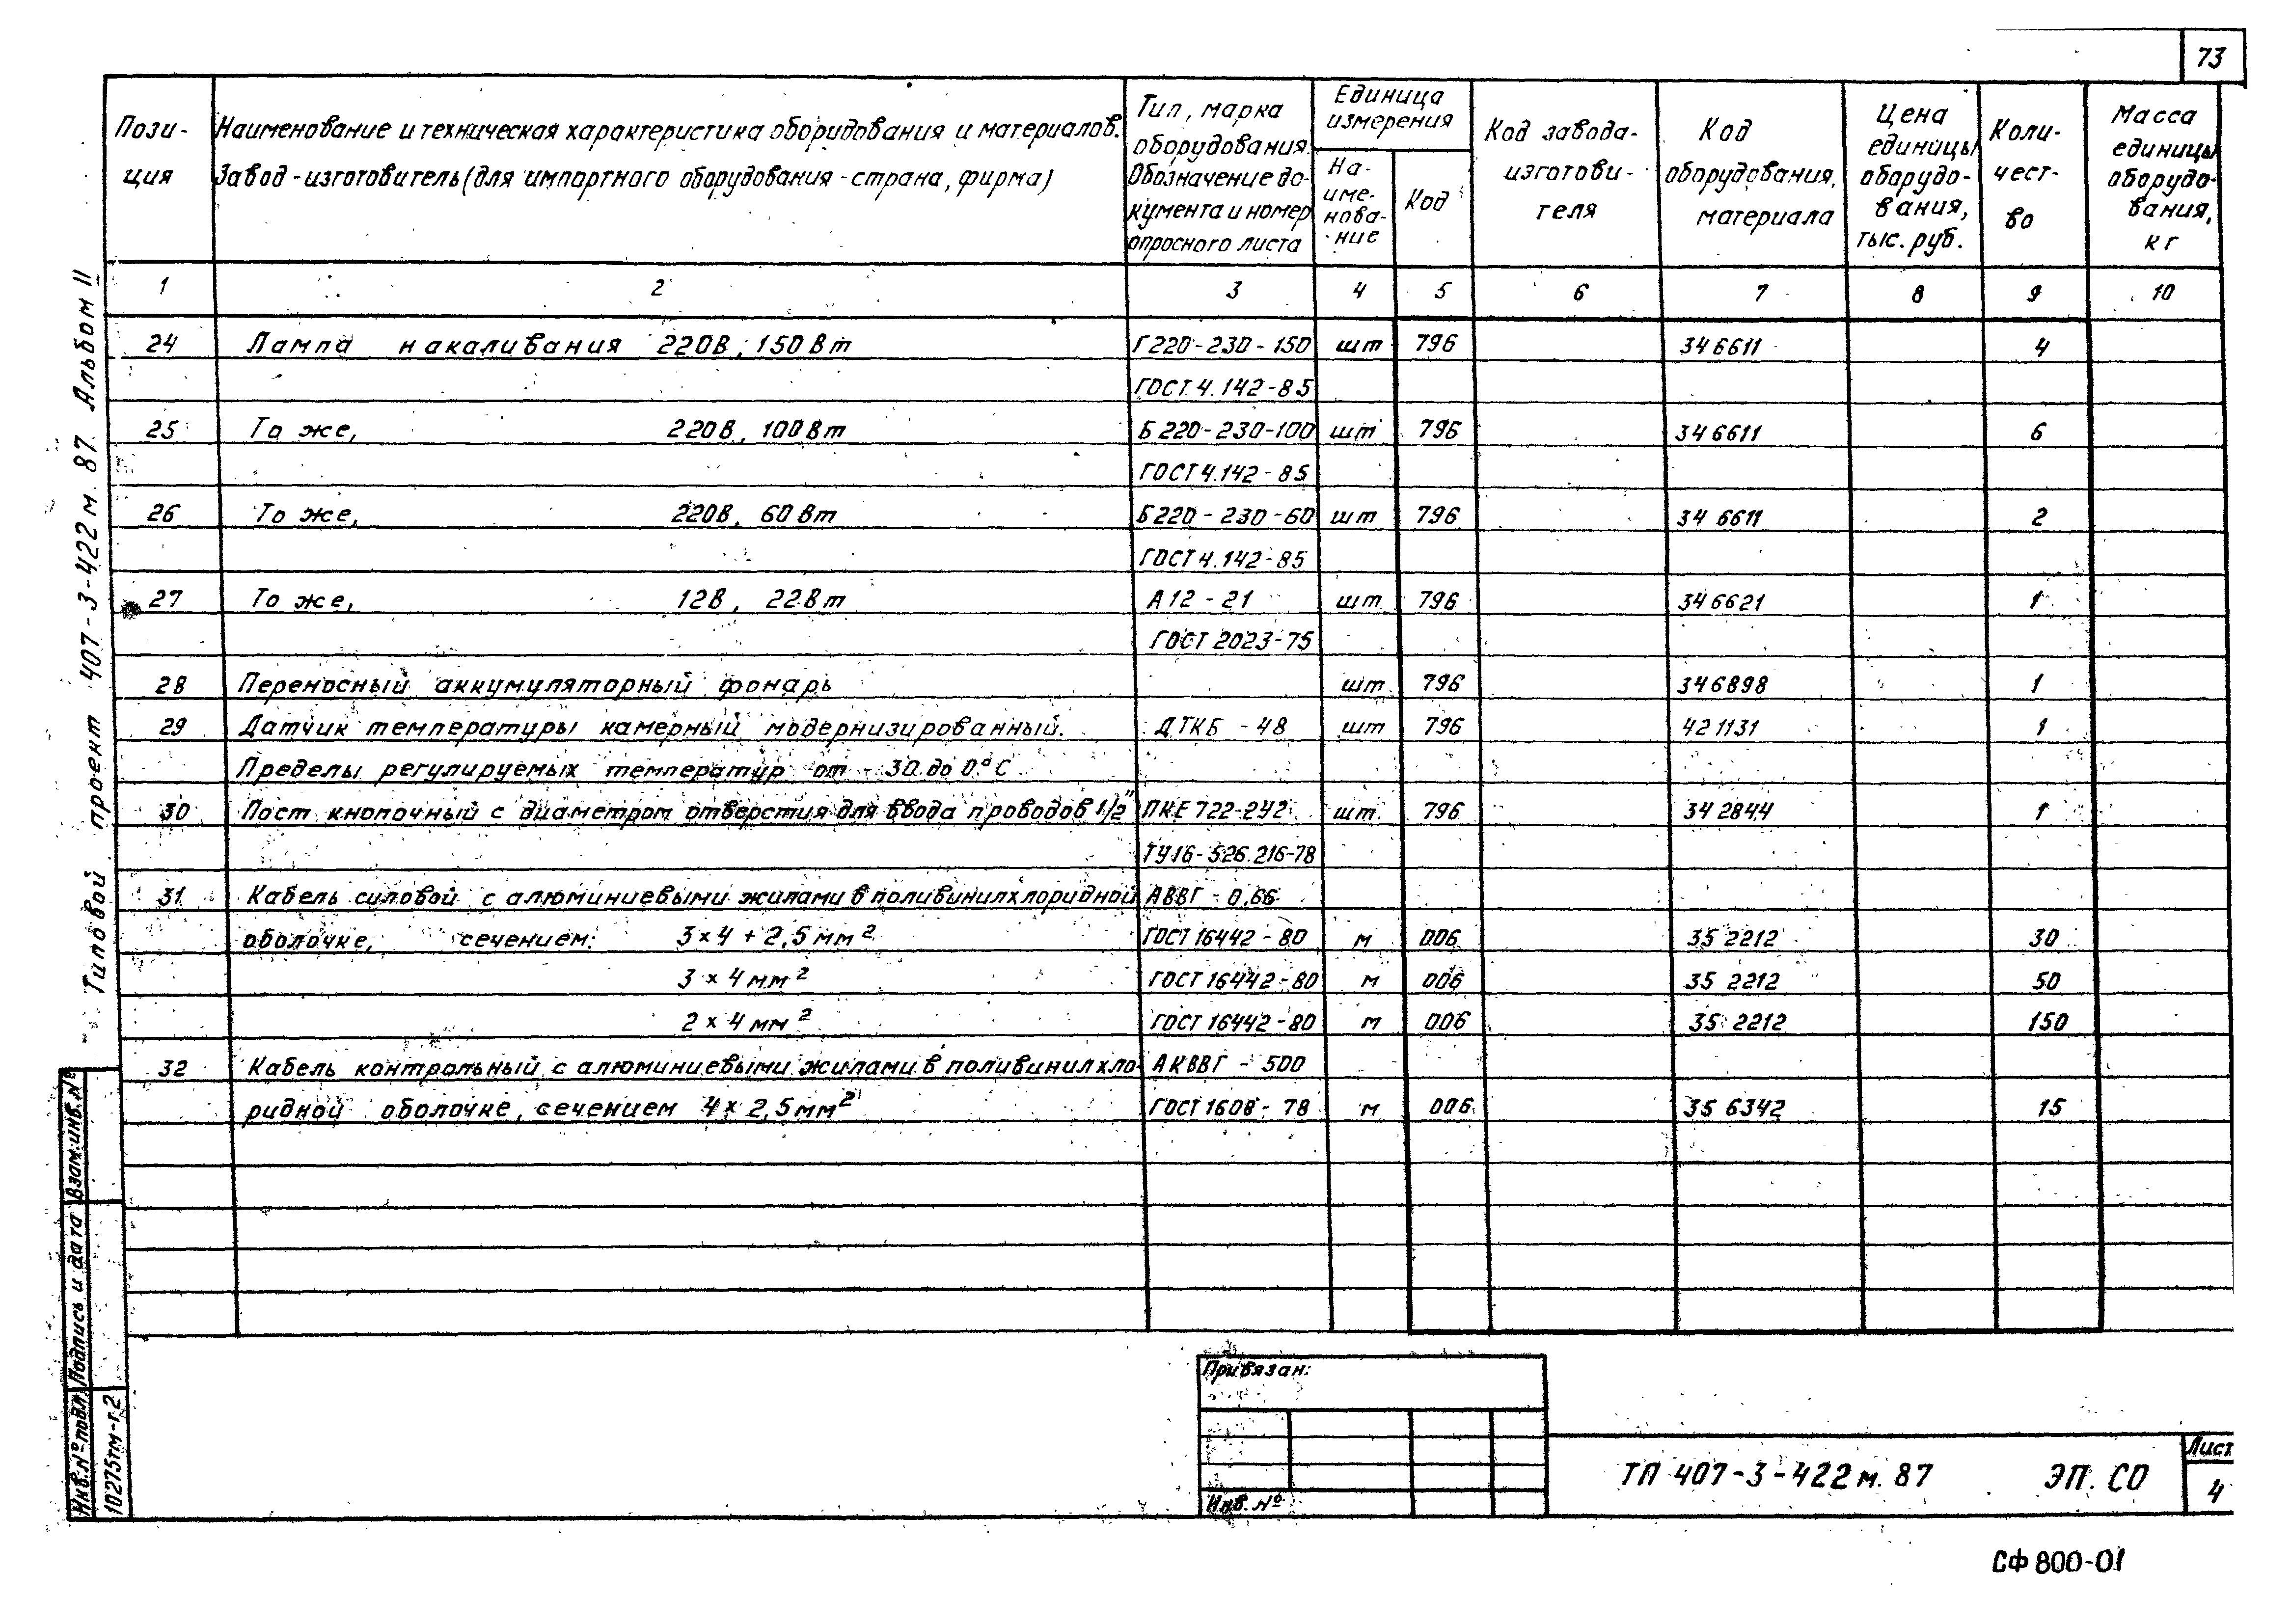 73
Пози-
ция
Наименование и техническая характеристика оборудования и материалов.
Завод-изготовитель (для импортного оборудования - страна, фирма)
Тип, марка
оборудования.
Обозначение до-
кумента и номер
опросного листа
Единица
измерения
На-
име-
нова-
ние
Код
Код завода-
изготови-
теля
Код
оборудования,
материала
Цена
единицы
оборудо-
вания,
тыс. руб.
Коли-
чест-
во
Масса
единицы
оборудо-
вания,
кг
1 2 3 4 5 6 7 8 9 10
24 Лампа накаливания 220В, 150Вт Г220-230-150 шт 796 34 6611 4
ГОСТ 4.142-85
25 То же, 220В, 100Вт Б220-230-100 шт 796 34 6611 6
ГОСТ 4.142-85
26 То же, 220В, 60Вт Б220-230-60 шт 796 34 6611 2
ГОСТ 4.142-85
27 То же, 12В, 22Вт А12-21 шт 796 34 6621 1
ГОСТ 2023-75
28 Переносный аккумуляторный фонарь шт 796 34 6898 1
29 Датчик температуры камерный модернизированный. ДТКБ-48 шт 796 42 1131 1
Пределы регулируемых температур от -30 до 0°С
30 Пост кнопочный с диаметром отверстия для ввода проводов 1/2" ПКЕ 722-2У2 шт. 796 34 2844 1
ТУ16-526.216-78
31 Кабель силовой с алюминиевыми жилами в поливинилхлоридной АВВГ-0,66
оболочке, сечением: 3×4+2,5мм² ГОСТ 16442-80 м 006 35 2212 30
3×4мм² ГОСТ 16442-80 м 006 35 2212 50
2×4мм² ГОСТ 16442-80 м 006 35 2212 150
32 Кабель контрольный с алюминиевыми жилами в поливинилхло- АКВВГ-500
ридной оболочке, сечением 4×2,5мм² ГОСТ 1608-78 м 006 35 6342 15
Типовой проект 407-3-422 м. 87 Альбом II
Взам.инв.№
Подпись и дата
Инв.№ подл.
10275тм-т2
Привязан:
Инв. №
ТП 407-3-422 м. 87 ЭП. СО
Лист
4
СФ 800-01